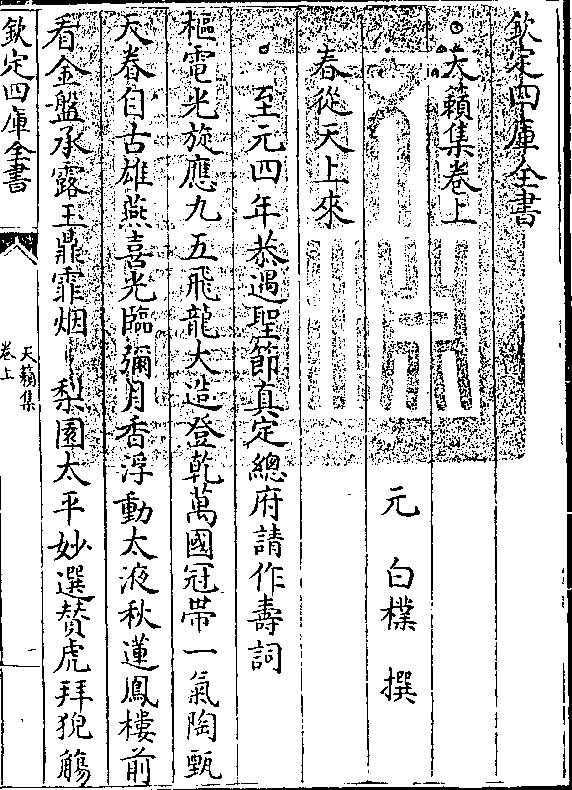 欽定四庫全書
天籟集卷上
元 白樸 撰
春從天上來
至元四年恭遇聖節真定總府請作壽詞
樞電光旋應九五飛龍大造登乾萬國冠帶一氣陶甄
天眷自古雄燕喜光臨彌月香浮動太液秋蓮鳳樓前
看金盤承露玉鼎霏烟 梨園太平妙選贊虎拜猊觴
欽定四庫全書
天籟集
卷上